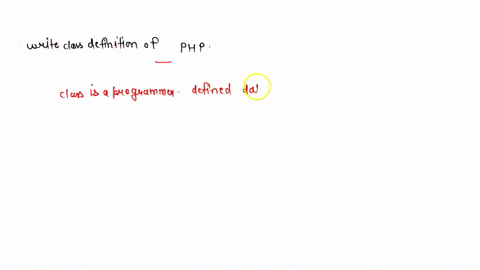 write class definition of PHP.
class is a programmer. defined dat